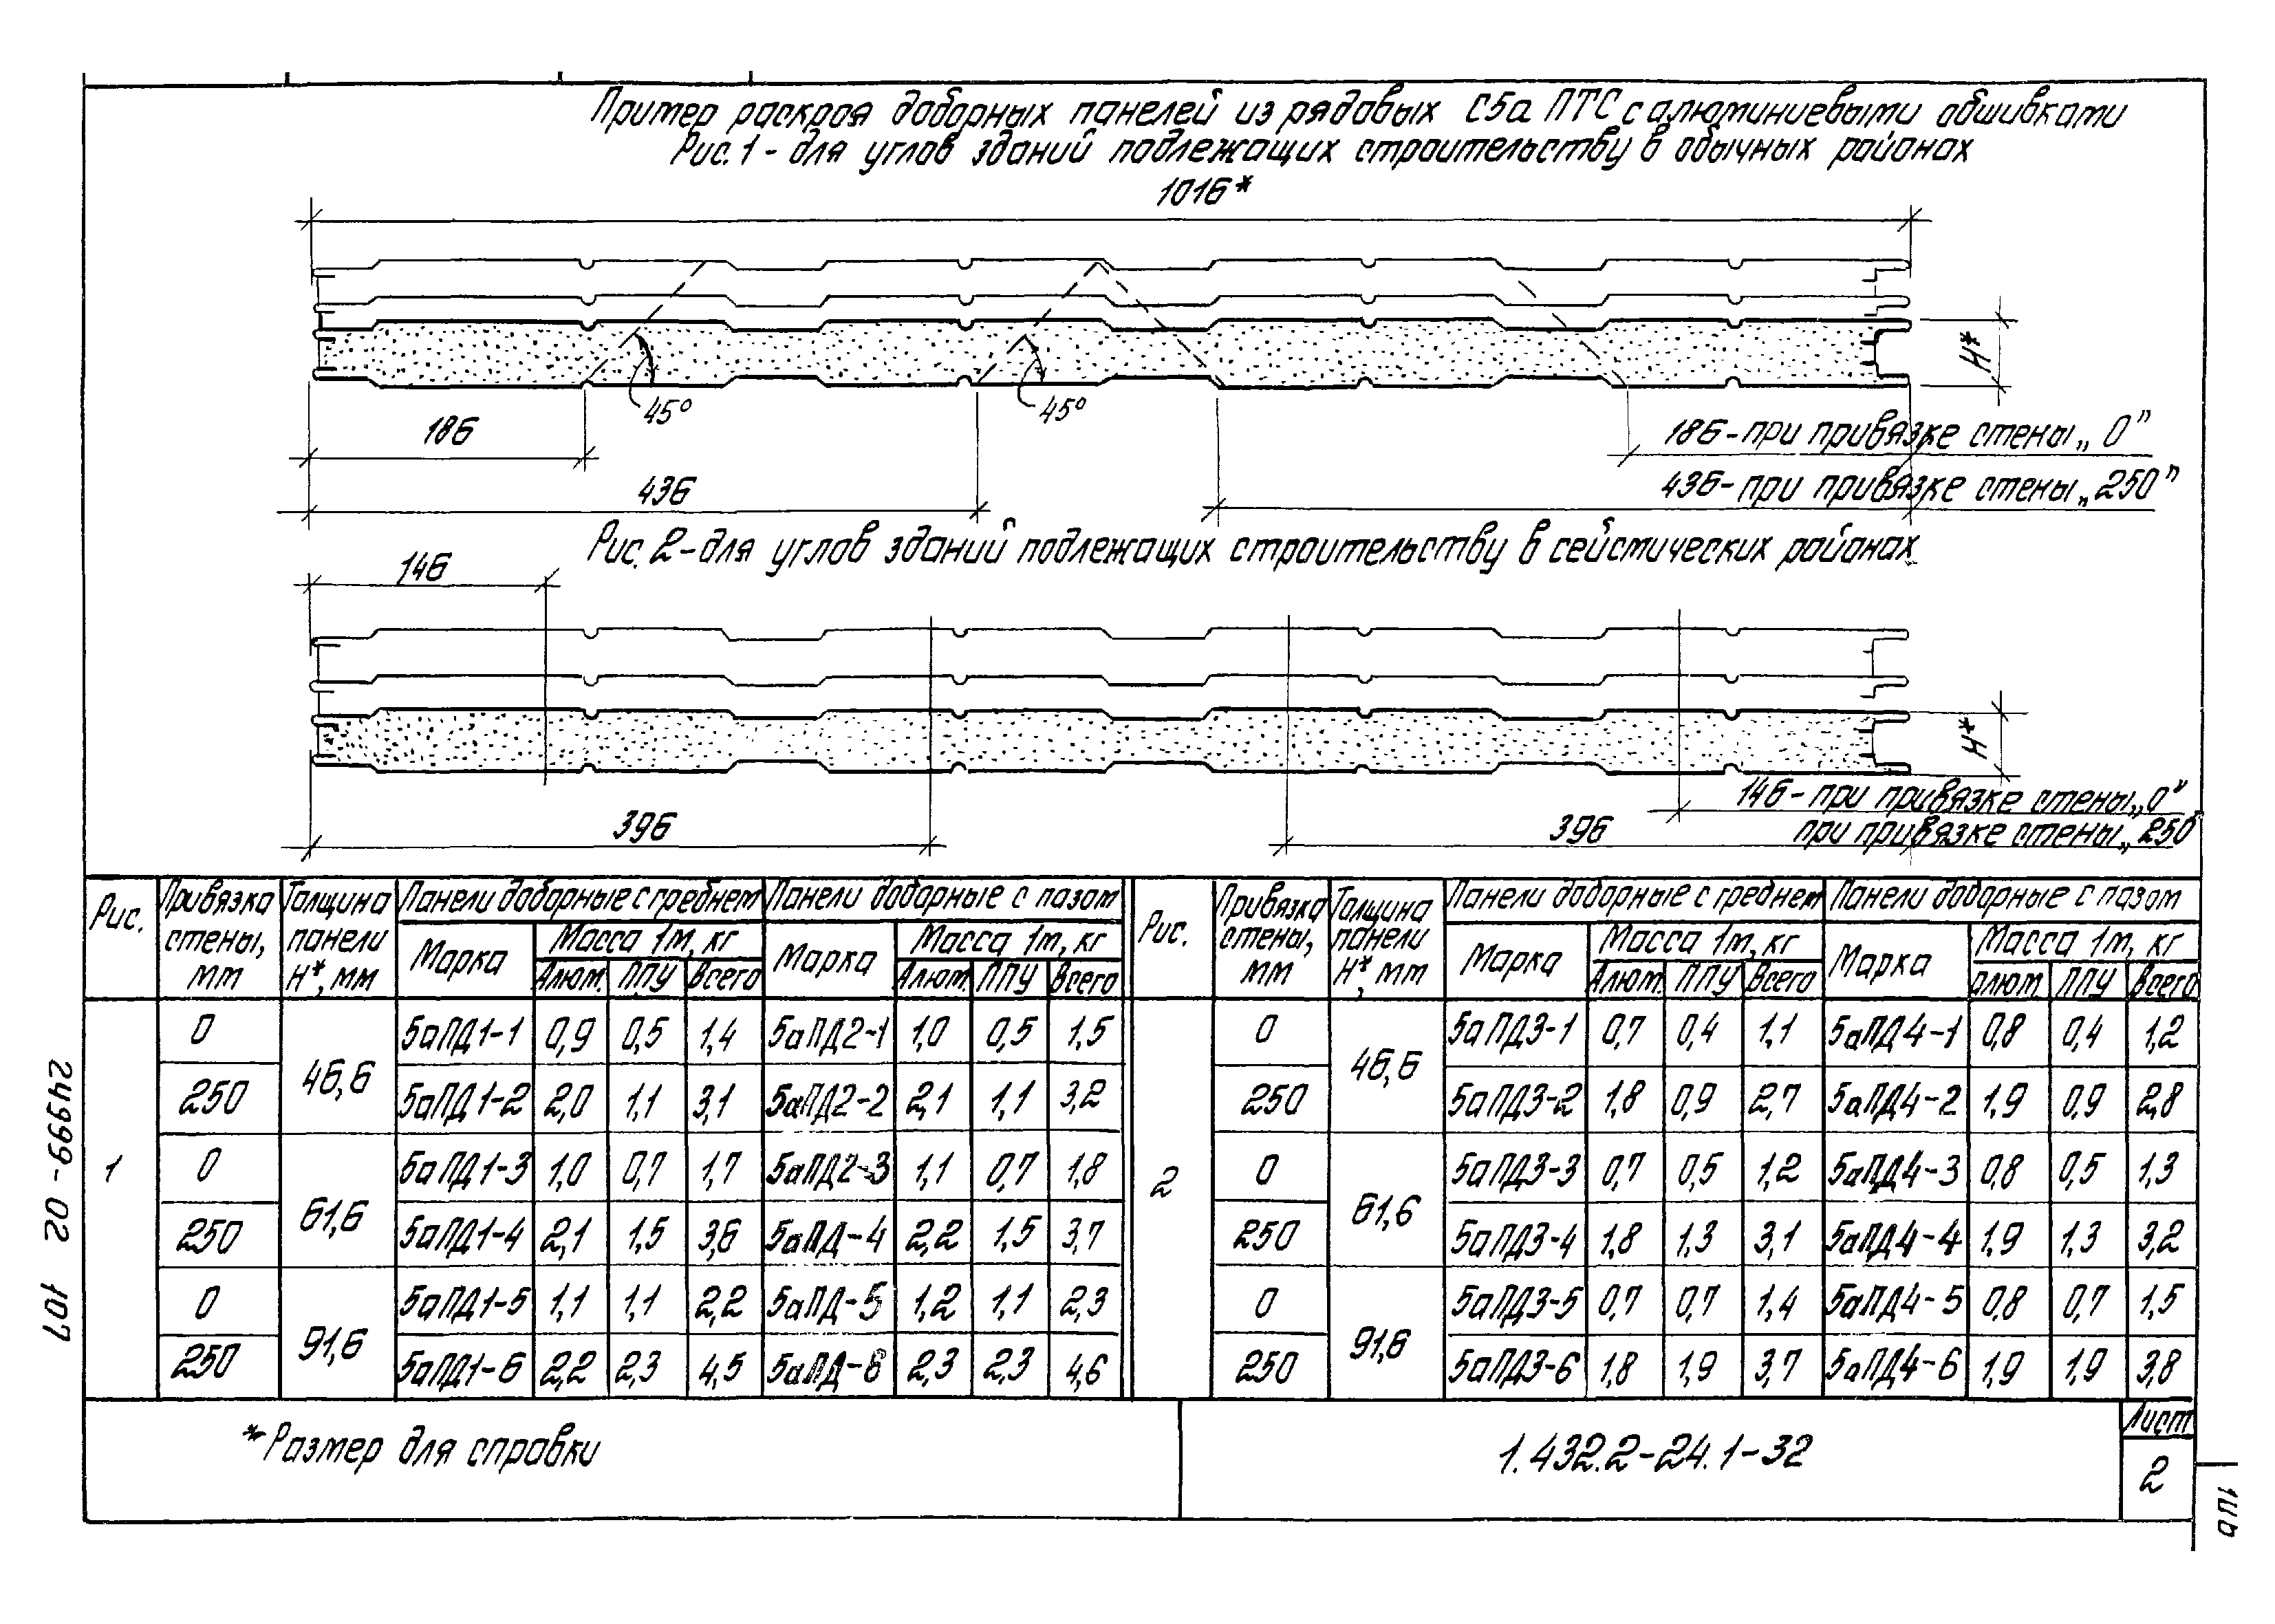 Пример раскроя доборных панелей из рядовых С5а ПТС с алюминиевыми обшивками
Рис. 1 - для углов зданий подлежащих строительству в обычных районах
1016*
Н*
45°
45°
186
186 - при привязке стены „0”
436
436 - при привязке стены „250”
Рис. 2 - для углов зданий подлежащих строительству в сейсмических районах
146
Н*
146 - при привязке стены „0”
396
396 при привязке стены „250
Рис. | Привязка стены, мм | Толщина панели Н*, мм | Панели доборные с гребнем | Панели доборные с пазом | Рис. | Привязка стены, мм | Толщина панели Н*, мм | Панели доборные с гребнем | Панели доборные с пазом
Марка | Масса 1м, кг | Марка | Масса 1м, кг | Марка | Масса 1м, кг | Марка | Масса 1м, кг
Алюм. | ППУ | Всего | Алюм. | ППУ | Всего | Алюм. | ППУ | Всего | Алюм. | ППУ | Всего
1 | 0 | 46,6 | 5аПД1-1 | 0,9 | 0,5 | 1,4 | 5аПД2-1 | 1,0 | 0,5 | 1,5 | 2 | 0 | 46,6 | 5аПД3-1 | 0,7 | 0,4 | 1,1 | 5аПД4-1 | 0,8 | 0,4 | 1,2
250 | 5аПД1-2 | 2,0 | 1,1 | 3,1 | 5аПД2-2 | 2,1 | 1,1 | 3,2 | 250 | 5аПД3-2 | 1,8 | 0,9 | 2,7 | 5аПД4-2 | 1,9 | 0,9 | 2,8
0 | 61,6 | 5аПД1-3 | 1,0 | 0,7 | 1,7 | 5аПД2-3 | 1,1 | 0,7 | 1,8 | 0 | 61,6 | 5аПД3-3 | 0,7 | 0,5 | 1,2 | 5аПД4-3 | 0,8 | 0,5 | 1,3
250 | 5аПД1-4 | 2,1 | 1,5 | 3,6 | 5аПД-4 | 2,2 | 1,5 | 3,7 | 250 | 5аПД3-4 | 1,8 | 1,3 | 3,1 | 5аПД4-4 | 1,9 | 1,3 | 3,2
0 | 91,6 | 5аПД1-5 | 1,1 | 1,1 | 2,2 | 5аПД-5 | 1,2 | 1,1 | 2,3 | 0 | 91,6 | 5аПД3-5 | 0,7 | 0,7 | 1,4 | 5аПД4-5 | 0,8 | 0,7 | 1,5
250 | 5аПД1-6 | 2,2 | 2,3 | 4,5 | 5аПД-6 | 2,3 | 2,3 | 4,6 | 250 | 5аПД3-6 | 1,8 | 1,9 | 3,7 | 5аПД4-6 | 1,9 | 1,9 | 3,8
*Размер для справки
1.432.2-24.1-32
Лист
2
24999-02 107